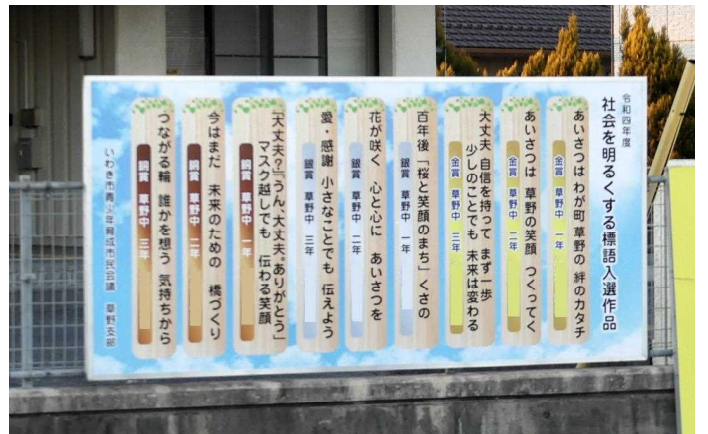 令和四年度
社会を明るくする標語入選作品
あいさつは わが町 草野の 絆のカタチ
金賞 草野中 一年
あいさつは 草野の笑顔 つくってく
金賞 草野中 二年
大丈夫 自信を持って まず一歩
少しのことでも 未来は変わる
金賞 草野中 三年
百年後 「桜と笑顔のまち」 くさの
銀賞 草野中 一年
花が咲く 心と心に あいさつを
銀賞 草野中 二年
愛・感謝 小さなことでも 伝えよう
銀賞 草野中 三年
「大丈夫?」「うん、大丈夫。ありがとう」
マスク越しでも 伝わる笑顔
銅賞 草野中 一年
今はまだ 未来のための 橋づくり
銅賞 草野中 二年
つながる輪 誰かを想う 気持ちから
銅賞 草野中 三年
いわき市青少年育成市民会議 草野支部